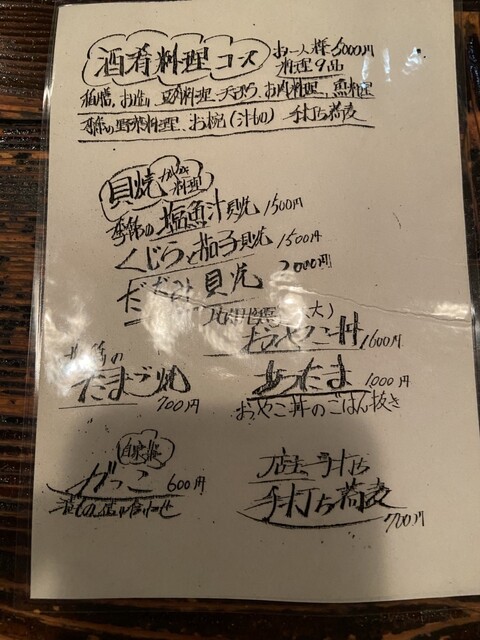 酒肴料理コース お一人様6000円
料理9品
お造り、豆腐料理、天ぷら、お肉料理、魚料理
季節の野菜料理、お椀(汁もの) 手打ち蕎麦
貝焼 かやき 料理
季節の塩魚汁貝焼 1500円
くじらと茄子貝焼 1500円
だだみ貝焼 2000円
(大)
おやこ丼 1600円
たまご焼 700円
あったま 1000円
おやこ丼のごはん抜き
自家製
がっこ 600円
漬もの盛り合わせ
店主手打ち
手打ち蕎麦 700円